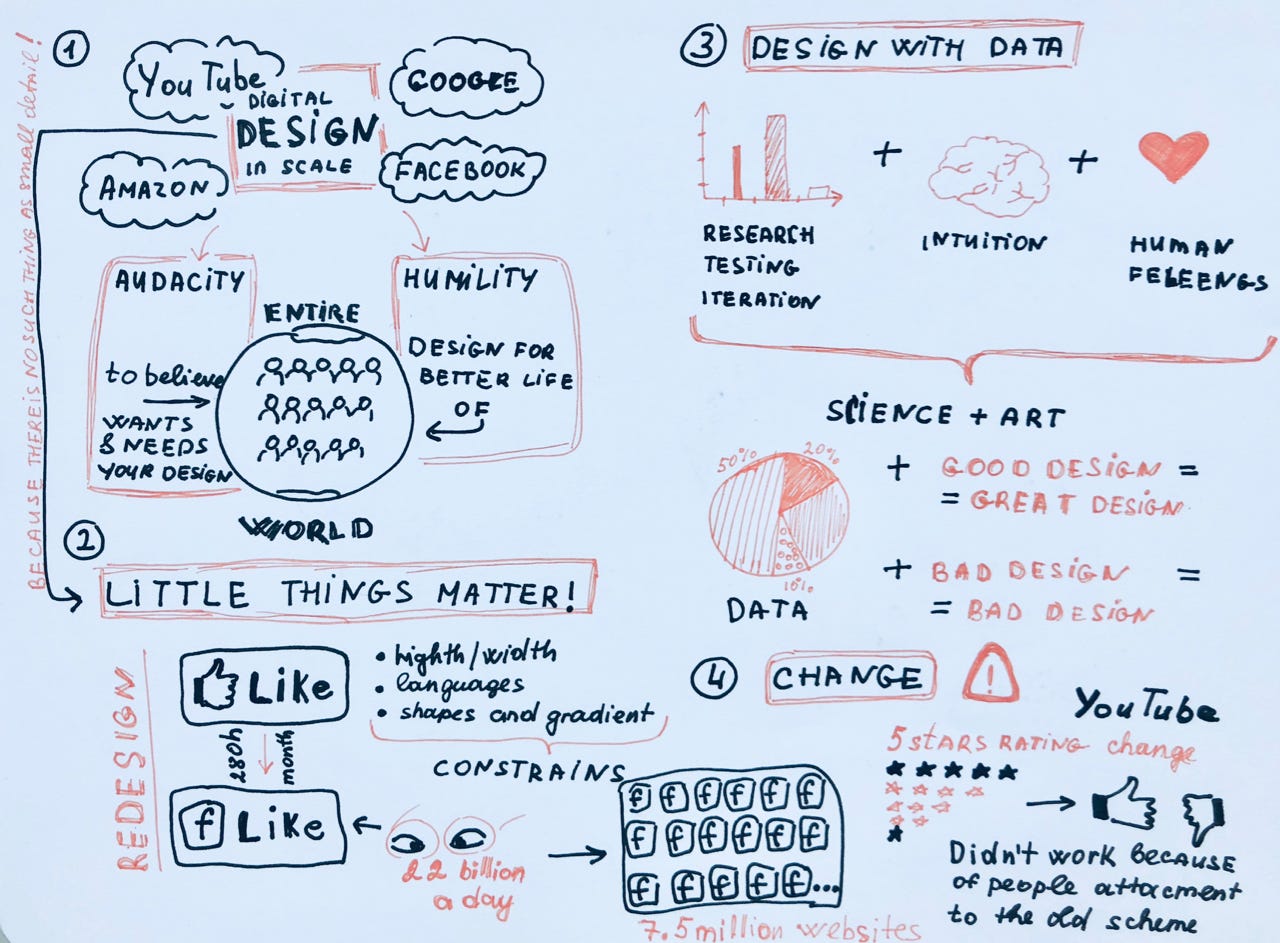 BECAUSE THERE IS NO SUCH THING AS small detail!
1
YouTube
GOOGLE
DIGITAL
DESIGN
IN SCALE
AMAZON
FACEBOOK
AUDACITY
to believe
WANTS
& NEEDS
YOUR DESIGN
ENTIRE
WORLD
HUMILITY
DESIGN FOR
BETTER LIFE
OF
2
LITTLE THINGS MATTER!
REDESIGN
Like
280h
month
f Like
• highth/width
• languages
• shapes and gradient
CONSTRAINS
22 billion
a day
f f f f f f
f f f f f f
f f f f f...
7.5 million websites
3 DESIGN WITH DATA
+
+
RESEARCH
TESTING
ITERATION
INTUITION
HUMAN
FELEENGS
SCIENCE + ART
50%
20%
10%
DATA
+ GOOD DESIGN =
= GREAT DESIGN
+ BAD DESIGN =
= BAD DESIGN
4 CHANGE
!
YouTube
5 STARS RATING change
Didn't work because
of people attacment
to the old scheme